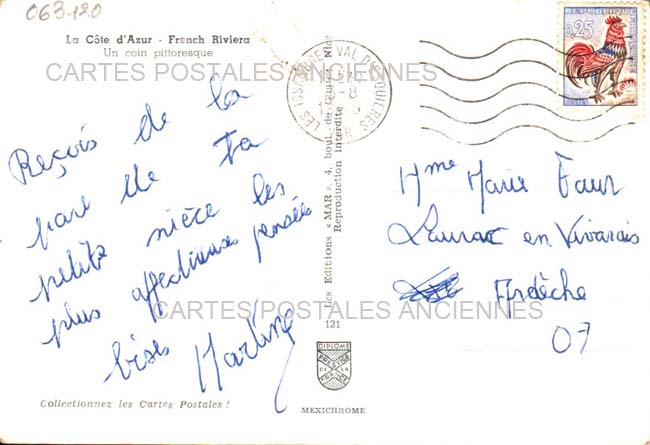 063-120
La Côte d'Azur - French Riviera
Un coin pittoresque
CARTES POSTALES ANCIENNES
Reçois de la
part de ta
petite nièce les
plus affectueuses pensées
bises Martine
Les Editions « MAR », 4, boul. de Cimiez, Nice
Reproduction interdite
LES ISSAMBRES VAL D'ESQUIERES
REPUBLIQUE FRANCAISE
0,25
POSTES
Mme Marie Faur
Laurac en Vivarais
Ardèche
07
CARTES POSTALES ANCIENNES
121
DIPLOME
PRESTIGE
DE LA
FRANCE
MEXICHROME
Collectionnez les Cartes Postales !